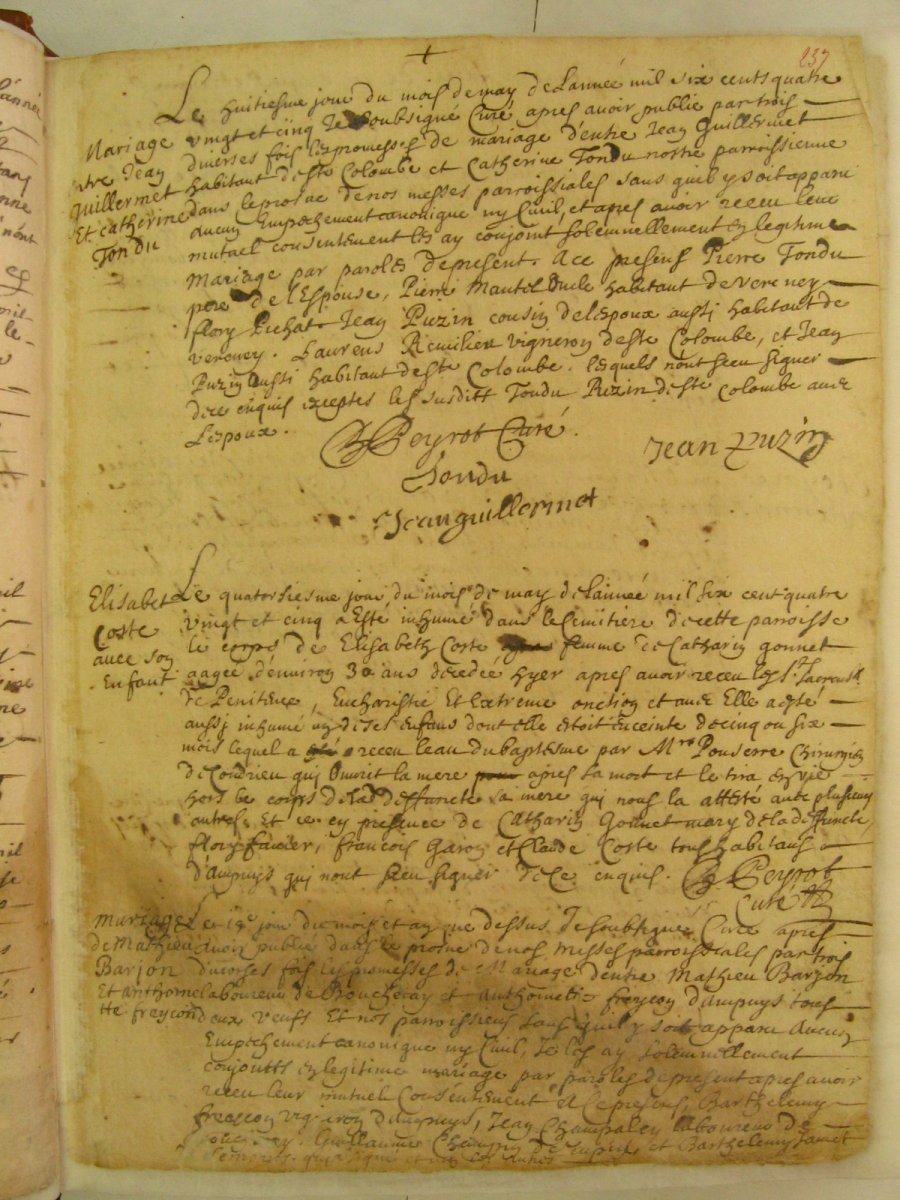 237
Le huitiesme jour du mois de may de l'année mil six cents quatre
Mariage
entre Jean
Guillermet
Et Catherine
Tondu
vingt et cinq Je soubsigné Curé apres avoir publié par trois
diverses fois les promesses de mariage d'entre Jean Guillermet
habitant de ste Colombe et Catherine Tondu nostre parroissienne
dans le prosne de nos messes parroissiales sans quil y soit apparu
aucun Empechement canonique ny Civil, et apres avoir receu leur
mutuel consentement les ay conjoint solemnellement en legitime
Mariage par paroles de present. A ce presens Pierre Tondu
pere de l'Espouse, Pierre Mantel Oncle habitant de Vereney
flory Pichat Jean Puzin cousin de l'espoux aussi habitant de
vereney. Laurens Remilier vigneron de ste Colombe, et Jean
Puzin aussi habitant de ste Colombe. lesquels n'ont sceu signer
de ce enquis exceptes les susditt Tondu Puzin de ste Colombe avec
L'espoux.
Peyrot Curé.
Jean Puzin
Tondu
Jean guillermet
Elisabet
Coste
avec son
Enfant
Le quatorsiesme jour du mois de may de l'année mil six cent quatre
vingt et cinq a Esté inhumé dans le Cimitiere de cette parroisse
le corps de Elisabeth Coste femme de Catharin gonnet
aagée d'environ 30 ans decedée hyer apres avoir receu les sts
de Penitence, Eucharistie Et l'extreme onction et avec Elle a esté
aussi inhumé un de ses enfans dont elle estoit enceinte de cinq ou six
mois lequel a receu l'eau du baptesme par Mre Ponserre Chirurgien
de Condrieu qui Ouvrit la mere apres sa mort et le tira en vie
hors le corps de la deffuncte sa mere qui nous la attesté avec plusieurs
autres. Et ce en presence de Catharin Gonnet mary de la deffuncte,
flory favier, francois Garon et Claude Coste tous habitans
d'ampuys qui n'ont sceu signer de ce enquis. Peyrot
Curé
mariage
de Mathieu
Barjon
Et anthome
tte freycon
Le jour du mois et an que dessus Je soubsigné Curé apres
avoir publié dans le prosne de nos messes parroissiales par trois
diverses fois les promesses de Mariage d'entre Mathieu Barjon
laboureur de Boucheray et anthomette freycon d'ampuys tous
deux veufs Et nos parroissiens sans quil y soit apparu aucun
Empechement canonique ny Civil, Je les ay solemnellement
conjoints en legitime mariage par paroles de present apres avoir
receu leur mutuel Consentement A ce presens, Barthelemy
freycon vigneron d'ampuys, Jean Champaley laboureur de
Guillaume et Barthelemy Jamet